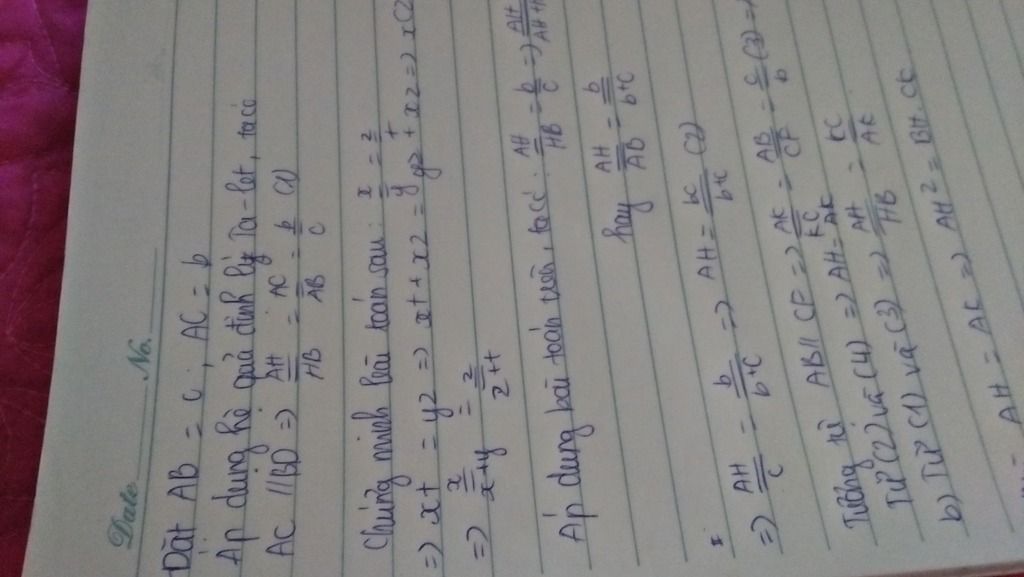 Date No.
Đặt AB = c ; AC = b
Áp dụng hệ quả định lý Ta-let, ta có
AC // BD => AH/HB = AC/AB = b/c (1)
Chứng minh bài toán sau: x/y = z/t
=> xt = yz => xt + xz = yz + xz => x(z
=> x/(x+y) = z/(z+t)
Áp dụng bài toán trên, ta có: AH/HB = b/c => AH/AH+
hay AH/AB = b/(b+c)
=> AH/c = b/(b+c) => AH = bc/(b+c) (2)
Tương tự AB // CF => AK/KC = AB/CF = c/b (3) =>
Từ (2) và (4) => AH = AK
Từ (1) và (3) => AH/HB = KC/AK
b) Từ AH = AK => AH² = BH.CK
AH =